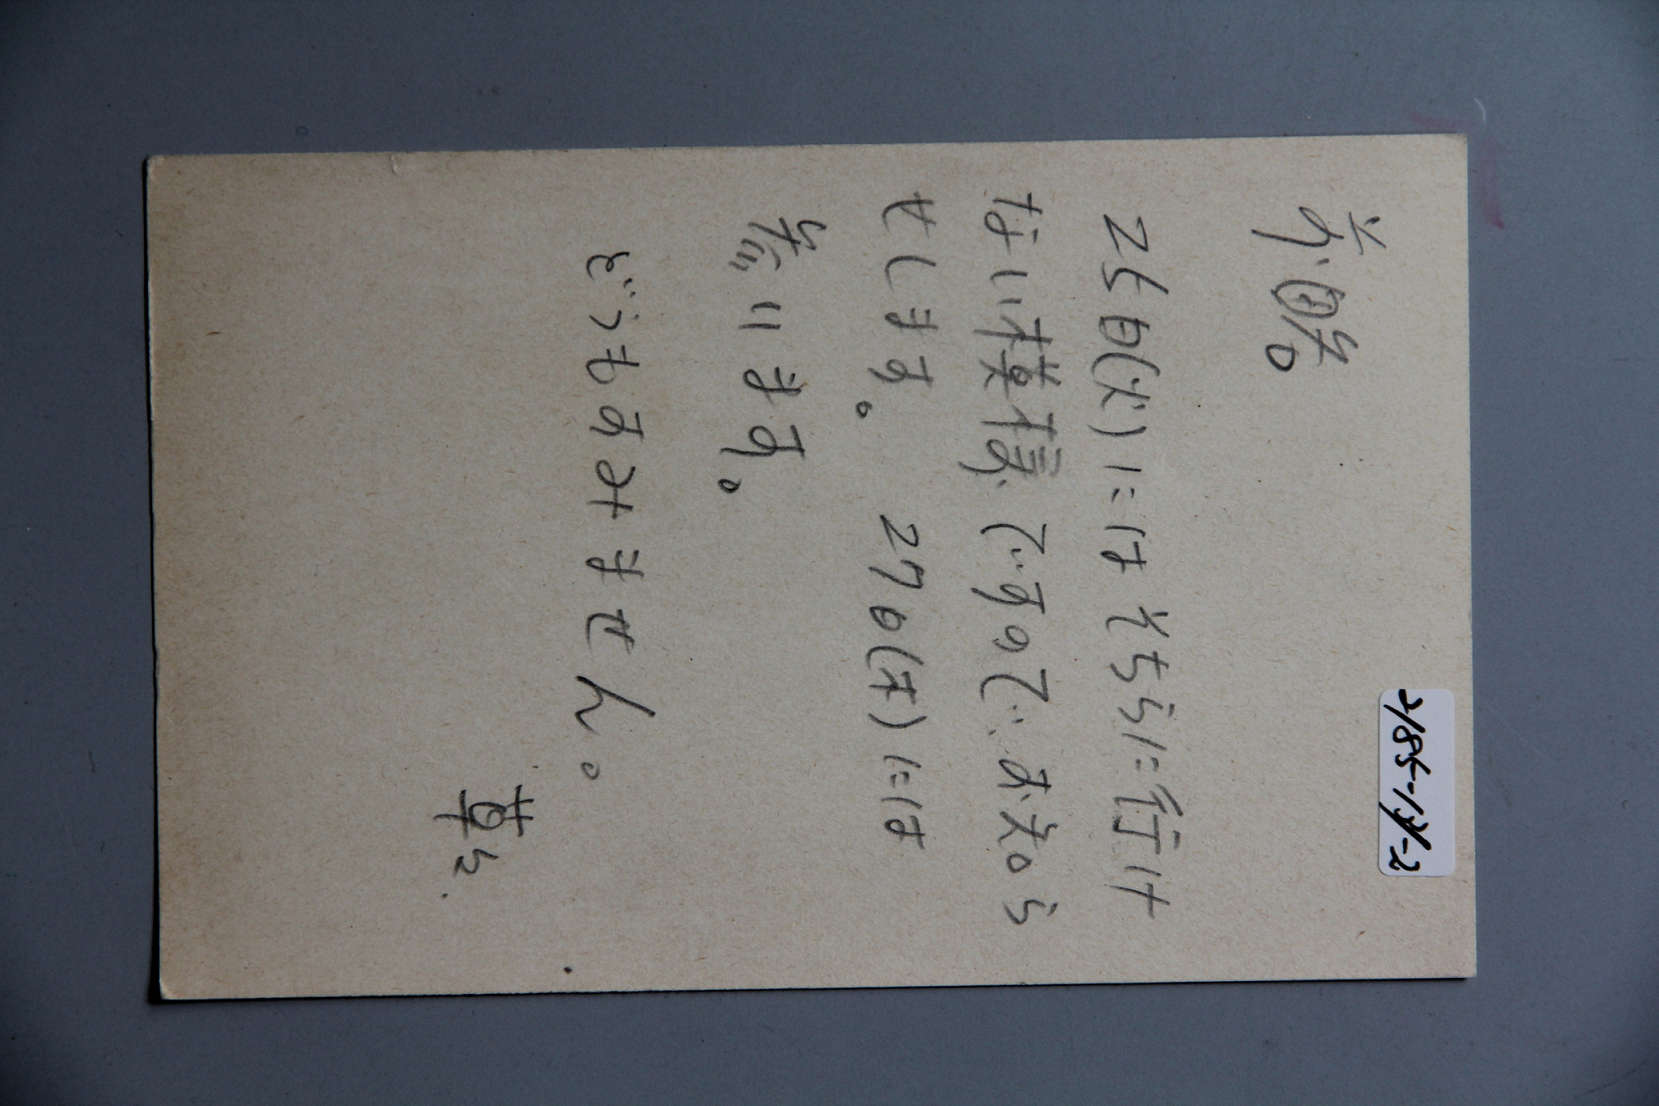 前略
25日(火)にはそちらに行け
ない模様ですので、お知ら
せします。 27日(木)には
参ります。
どうもすみません。
草々